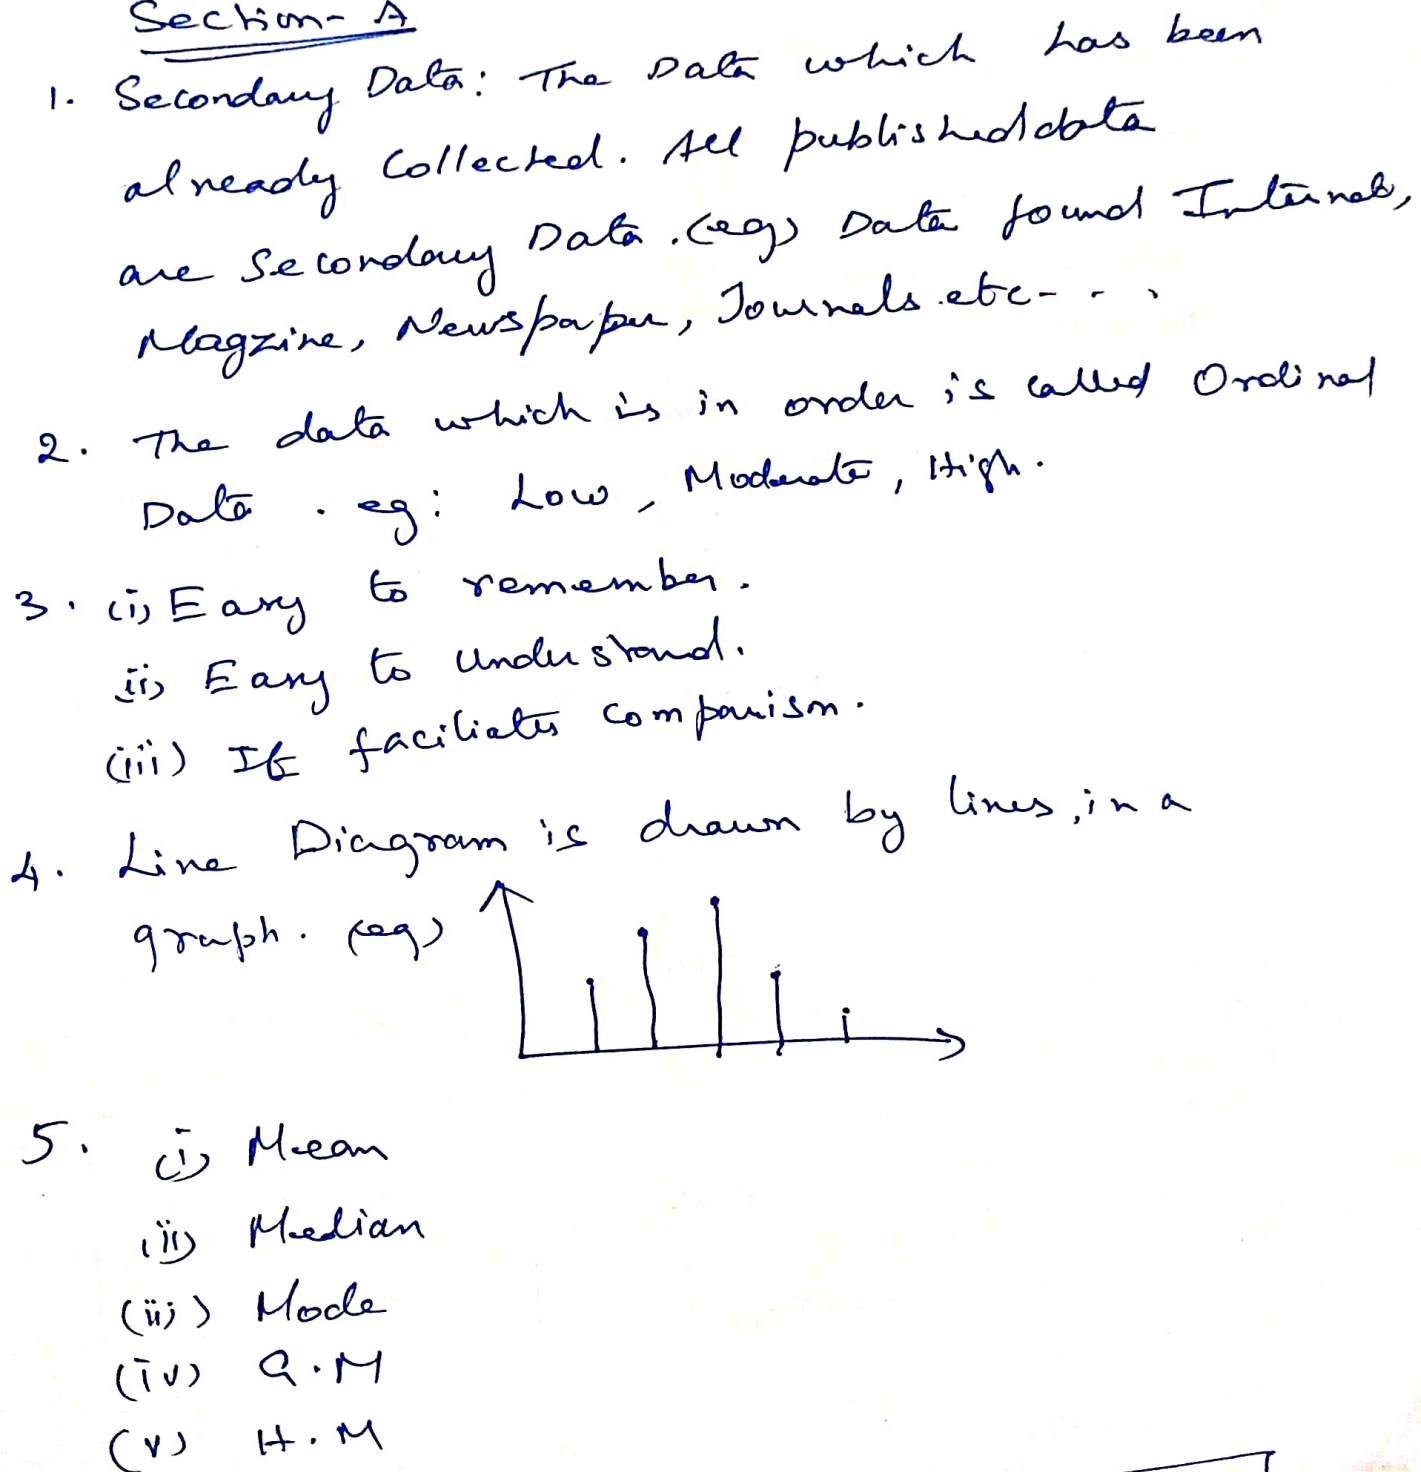 Section - A
1. Secondary Data: The Data which has been
already Collected. All published data
are Secondary Data. (eg) Data found Internet,
Magzine, Newspaper, Journals etc - - .
2. The data which is in order is called Ordinal
Data. eg: Low, Moderate, High.
3. (i) Easy to remember.
ii) Easy to understand.
(iii) It faciliates comparison.
4. Line Diagram is drawn by lines, in a
graph. (eg)
5. (i) Mean
(ii) Median
(iii) Mode
(iv) G.M
(v) H.M